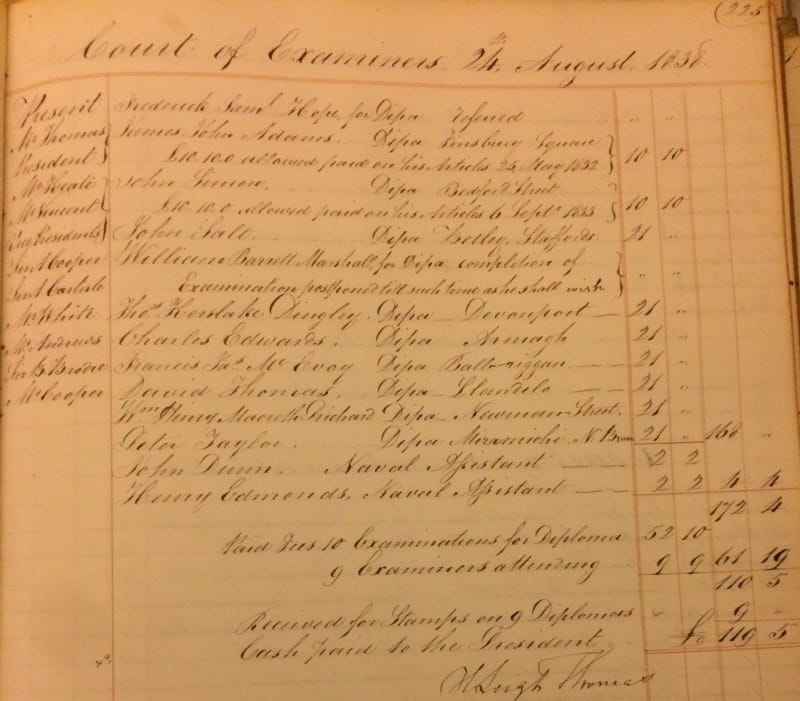 (225
Court of Examiners. 24th August. 1838.
Present Frederick Saml. Hope, for Dipa refered " "
Mr Thomas James John Adams. Dipa Finsbury Square
President } £10.10.0 allowed paid on his Articles 25 May 1832 } 10 10
Mr Keate John Simon. Dipa Bedford Street
Mr Vincent £10.10.0 allowed paid on his Articles 6 Septr. 1833 } 10 10
Vice Presidents John Salt. Dipa Betley, Staffords 21 "
Sir A Cooper William Barrett Marshall, for Dipa completion of
Sir A Carlisle Examination postponed till such time as he shall wish } " "
Mr White Thos. Kerslake Dingley. Dipa Devonport 21 "
Mr Andrews Charles Edwards. Dipa Armagh 21 "
Sir B. Brodie Francis Jas. Mc Evoy Dipa Balbriggan. 21 "
Mr Cooper David Thomas. Dipa Llandilo 21 "
Wm. Henry Macreth Prichard Dipa Newman Street. 21 "
Peter Taylor. Dipa Miramichi, N. 21 " 168 "
John Dunn. Naval Assistant 2 2
Henry Edmonds. Naval Assistant 2 2 4 4
172 4
Paid Fees 10 Examinations for Diploma 52 10
9 Examiners attending 9 9 61 19
110 5
Received for Stamps on 9 Diplomas " 9 "
Cash paid to the President £ 119 5
H Leigh Thomas